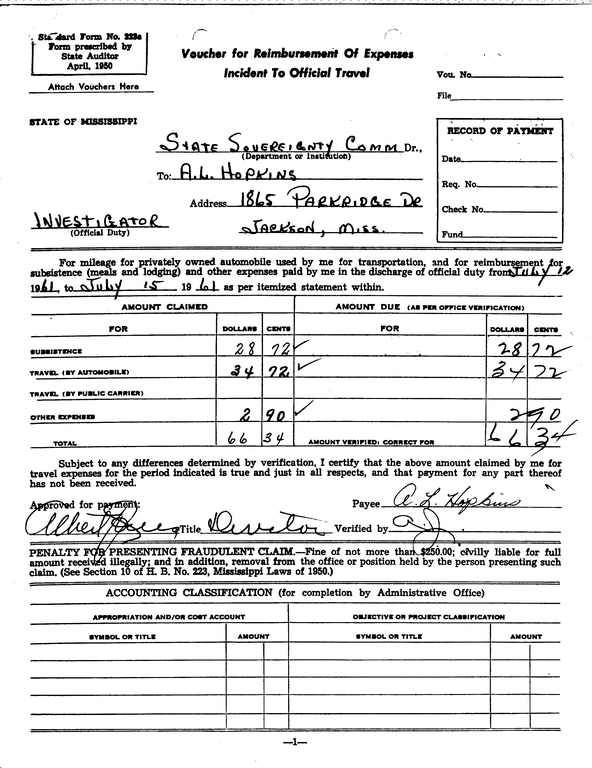 Standard Form No. 223a
Form prescribed by
State Auditor
April, 1950
Attach Vouchers Here
Voucher for Reimbursement Of Expenses
Incident To Official Travel
Vou. No.
File
STATE OF MISSISSIPPI
STATE SOVEREIGNTY COMM Dr.,
(Department or Institution)
To: A.L. HOPKINS
Address 1865 PARKRIDGE DR
INVESTIGATOR
(Official Duty)
JACKSON, MISS.
RECORD OF PAYMENT
Date
Req. No.
Check No.
Fund
For mileage for privately owned automobile used by me for transportation, and for reimbursement for
subsistence (meals and lodging) and other expenses paid by me in the discharge of official duty from July 12
1961, to July 15 1961 as per itemized statement within.
AMOUNT CLAIMED AMOUNT DUE (AS PER OFFICE VERIFICATION)
FOR DOLLARS CENTS FOR DOLLARS CENTS
SUBSISTENCE 28 72 ✓ 28 72
TRAVEL (BY AUTOMOBILE) 34 72 ✓ 34 72
TRAVEL (BY PUBLIC CARRIER)
OTHER EXPENSES 2 90 ✓ 2 90
TOTAL 66 34 AMOUNT VERIFIED: CORRECT FOR 66 34
Subject to any differences determined by verification, I certify that the above amount claimed by me for
travel expenses for the period indicated is true and just in all respects, and that payment for any part thereof
has not been received.
Approved for payment: Payee A. L. Hopkins
Albert Title Director Verified by
PENALTY FOR PRESENTING FRAUDULENT CLAIM.—Fine of not more than $250.00; civilly liable for full
amount received illegally; and in addition, removal from the office or position held by the person presenting such
claim. (See Section 10 of H. B. No. 223, Mississippi Laws of 1950.)
ACCOUNTING CLASSIFICATION (for completion by Administrative Office)
APPROPRIATION AND/OR COST ACCOUNT OBJECTIVE OR PROJECT CLASSIFICATION
SYMBOL OR TITLE AMOUNT SYMBOL OR TITLE AMOUNT
—1—